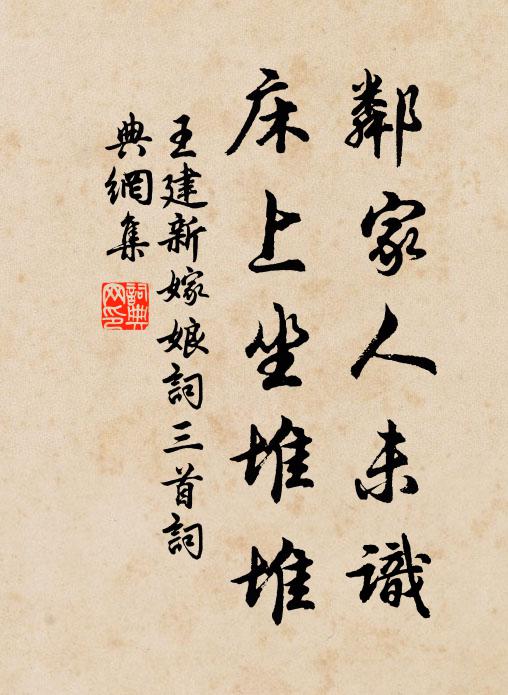 鄰家人未識
床上坐堆堆
王建新嫁娘詞三首詞
典網集
詞典
网印